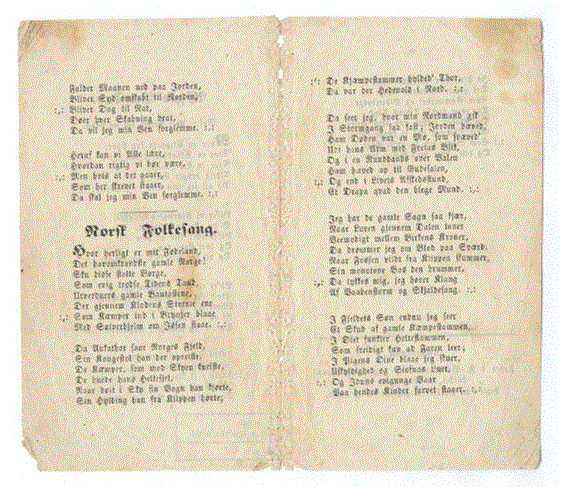 Falder Maanen ned paa Jorden,
Bliver Syd omskabt til Norden,
:,: Bliver Dag til Nat,
Døer hver Skabning brat,
Da vil jeg min Ven forglemme. :,:
Heraf kan vi Alle lære,
Hvordan rigtig vi bør være,
:,: Men hvis at det gaaer,
Som her skrevet staaer,
Da skal jeg min Ven forglemme. :,:
Norsk Folkesang.
Hvor herligt er mit Fødeland,
Det havomkrandste gamle Norge!
Sku disse stolte Borge,
Som evig trodse Tidens Tand,
Urverdners gamle Bautastene,
Der gjennem Klodens Storme ene
:,: Som Kæmper end i Brynjer blaae
Med Sølverhjelm om Issen staae. :,:
Da Aukathor saae Norges Fjeld,
Sin Kongestol han der opreiste.
De Kæmper, som mod Skyen kneiste,
De huede hans Heltesjel.
Naar høit i Sky sin Vogn han kjørte,
Sin Hylding han fra Klippen hørte;
:,: De Kjæmpestammer hylded' Thor,
Da var der Hedenold i Nord. :,:
Da seer jeg, hvor min Nordmand gik
I Stormgang saa fast; Jorden bæved,
Ham Døden var en Mø, som svæved'
Udi hans Arm med Freias Blik,
Og i en Mundkands over Valen
Ham hæved op til Gudesalen,
:,: Og end i Livets Afskedsstund,
Et Drapa qvad den blege Mund. :,:
Jeg har de gamle Sagn saa kjær,
Naar Luren gjennem Dalen toner
Vemodigt mellem Birkens Kroner,
Da drømmer jeg om Blod paa Sværd.
Naar Fossen vildt fra Klippen slummer,
Sin monotone Bas den brummer,
:,: Da tykkes mig, jeg hører Klang
Af Vaabenstorm og Skjaldesang. :,:
I Fjeldets Søn endnu jeg seer
Et Skud af gamle Kæmpestammen,
I Øiet funkler Helteflammen,
Som freidigt kun ad Faren leer;
I Pigens Øine blaae jeg skuer,
Uskyldighed og Elskovs Luer,
:,: Og Iduns evigunge Vaar
Paa hendes Kinder farvet staaer. :,: